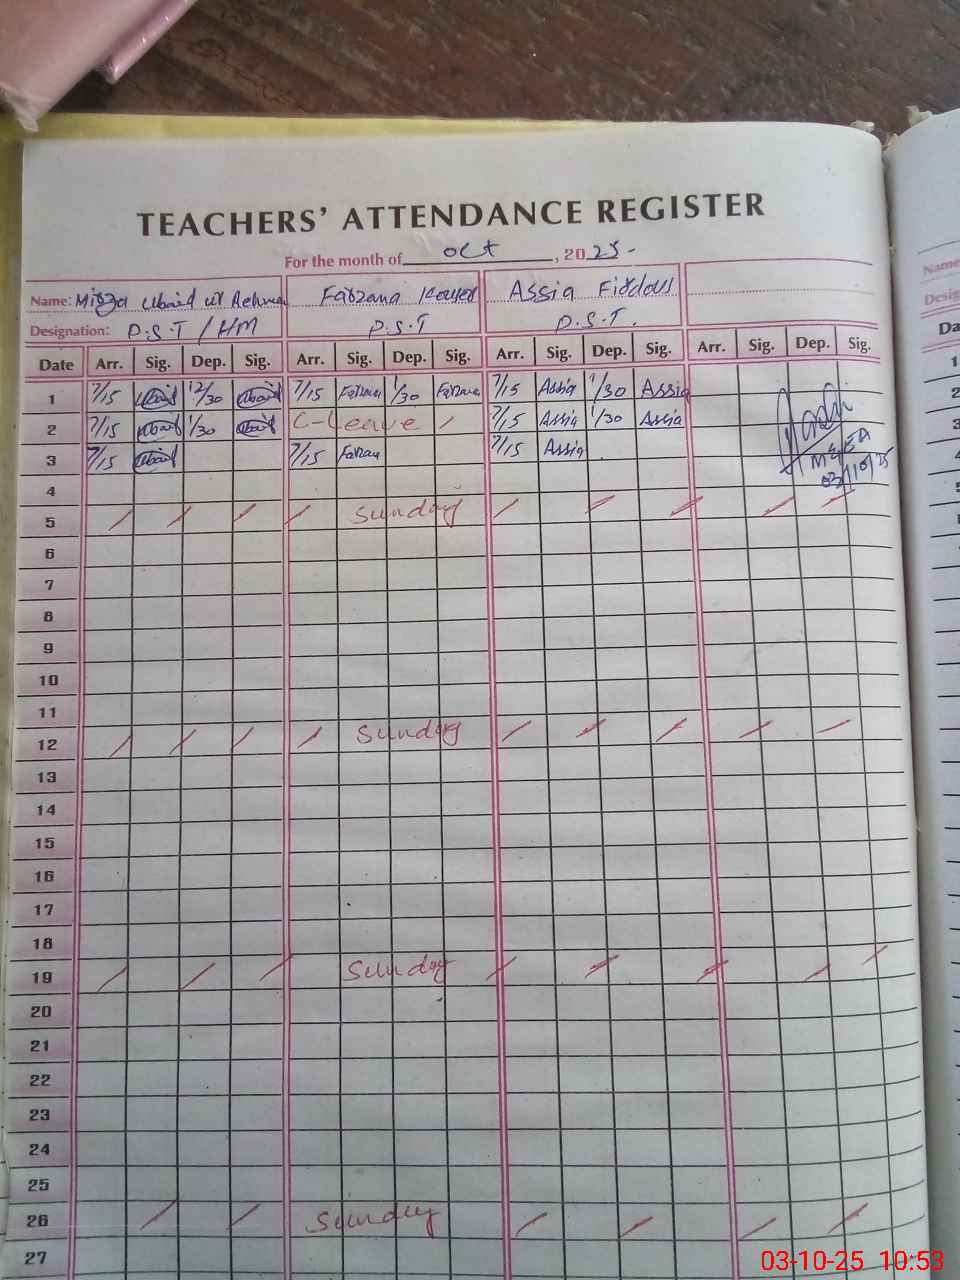 TEACHERS' ATTENDANCE REGISTER
For the month of Oct, 2025-
Name: Mirza Ubaid ur Rehman Farzana Kouser Assia Firdous
Designation: P.S.T / HM P.S.T P.S.T.
Date Arr. Sig. Dep. Sig. Arr. Sig. Dep. Sig. Arr. Sig. Dep. Sig. Arr. Sig. Dep. Sig.
1 7/15 Ubaid 12/30 Ubaid 7/15 Farzana 1/30 Farzana 7/15 Assia 1/30 Assia
2 7/15 Ubaid 1/30 Ubaid C-Leave 7/15 Assia 1/30 Assia
3 7/15 Ubaid 7/15 Farzana 7/15 Assia
M&EA
03/10/25
4
5 Sunday
6
7
8
9
10
11
12 Sunday
13
14
15
16
17
18
19 Sunday
20
21
22
23
24
25
26 Sunday
27
Name
Desig
Da
1
2
3
4
5
03-10-25 10:53